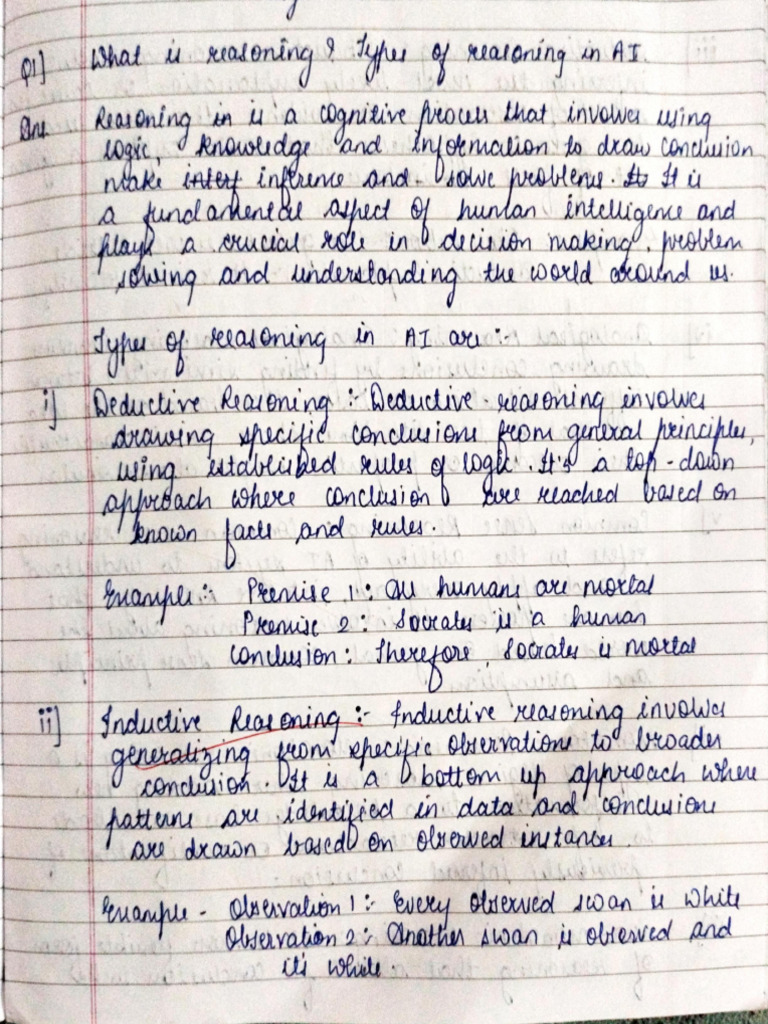 Q1] What is reasoning? Types of reasoning in AI.
Ans. Reasoning in is a cognitive process that involves using
logic, knowledge and information to draw conclusion
make interf inference and solve problems. It It is
a fundamental aspect of human intelligence and
plays a crucial role in decision making, problem
solving and understanding the world around us.
Types of reasoning in AI are :-
i] Deductive Reasoning :- Deductive reasoning involves
drawing specific conclusions from general principles,
using established rules of logic. It's a top-down
approach where conclusion are reached based on
known facts and rules.
Example :- Premise 1 : All humans are mortal
Premise 2 : Socrates is a human
Conclusion : Therefore, Socrates is mortal
ii] Inductive Reasoning :- Inductive reasoning involves
generalizing from specific observations to broader
conclusion. It is a bottom up approach where
patterns are identified in data and conclusions
are drawn based on observed instances.
Example - Observation 1 :- Every observed swan is white
Observation 2 : Another swan is observed and
it's white.